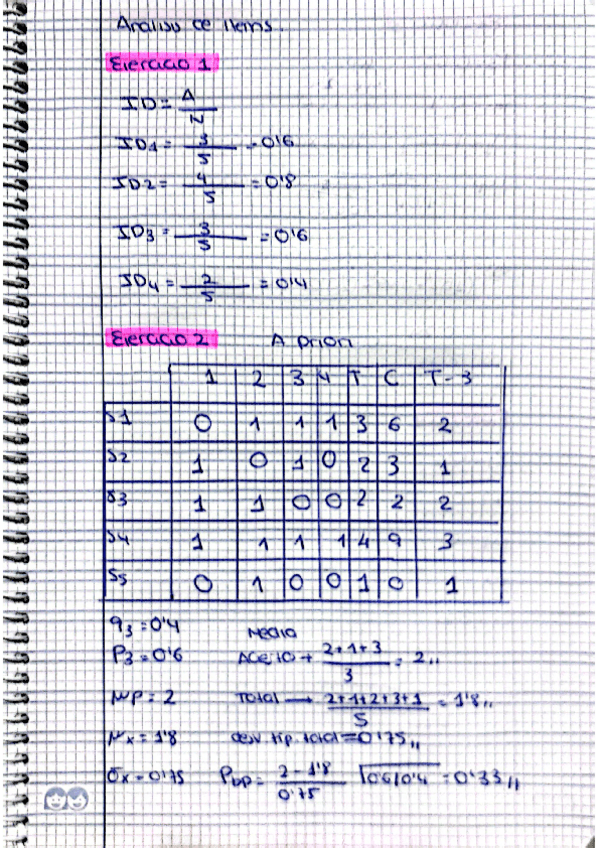 Analisis de items.
Ejercicio 1
ID = A / N
ID1 = 3 / 5 = 0'6
ID2 = 4 / 5 = 0'8
ID3 = 3 / 5 = 0'6
ID4 = 2 / 5 = 0'4
Ejercicio 2 A priori
1 2 3 4 T C T-3
S1 0 1 1 1 3 6 2
S2 1 0 1 0 2 3 1
S3 1 1 0 0 2 2 2
S4 1 1 1 1 4 9 3
S5 0 1 0 0 1 0 1
q3 = 0'4 Media
P3 = 0'6 Acierto → 2+1+3 / 3 = 2,,
μp = 2 Total → 2+1+2+3+1 / 5 = 1'8,,
μx = 1'8 desv. tip. total = 0'75,,
σx = 0'75 Pbp = 2 - 1'8 / 0'75 √0'6/0'4 = 0'33,,